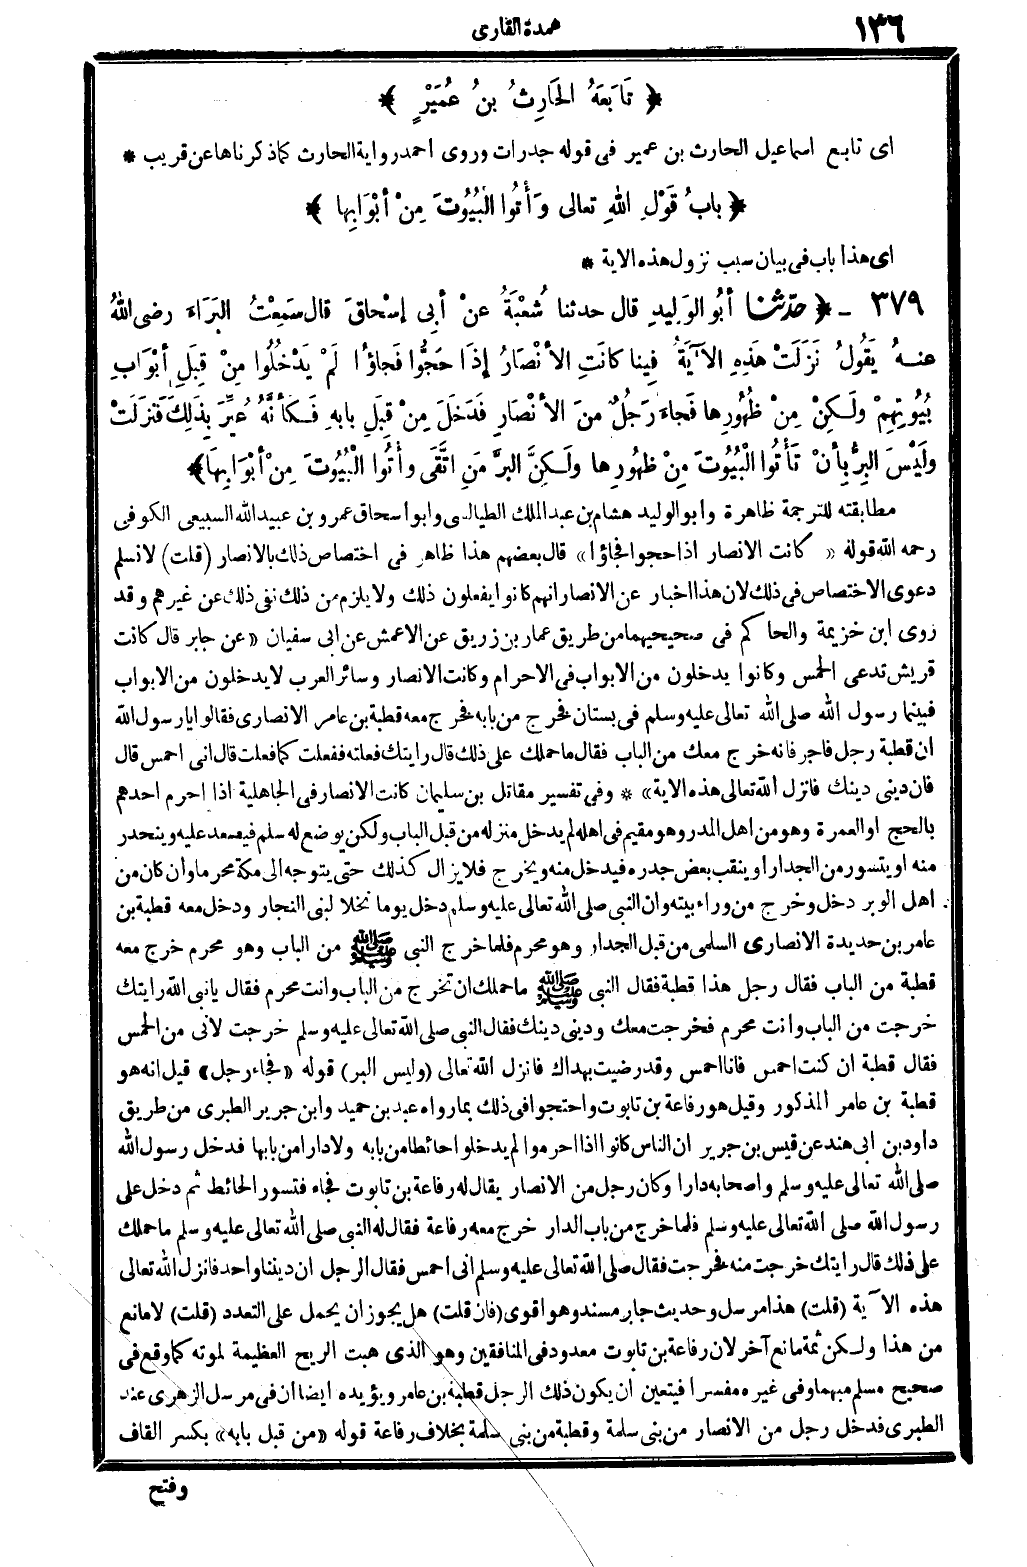 ١٣٦
عمدة القارى
﴿ تَابَعَهُ الحَارِثُ بنُ عُمَيْرٍ ﴾
اى تابع اسماعيل الحارث بن عمير فى قوله جدرات وروى احمد رواية الحارث كما ذكرناها عن قريب *
﴿ بابُ قَوْلِ اللهِ تعالى وَأْتُوا الْبُيُوتَ مِنْ أبْوَابِها ﴾
اى هذا باب فى بيان سبب نزول هذه الاية *
٣٧٩ - ﴿ حدّثنا أبُو الوَلِيدِ قال حدثنا شُعْبَةُ عنْ أبِى إسْحاقَ قال سَمِعْتُ البَرَاءَ رضى اللهُ
عنهُ يَقُولُ نَزَلَتْ هَذِهِ الآيَةُ فِينا كانَتِ الأنْصَارُ إذَا حَجُّوا فَجاؤُا لَمْ يَدْخُلُوا مِنْ قِبَلِ أبْوَابِ
بُيُوتِهِمْ ولَكِنْ مِنْ ظُهُورِها فَجاءَ رَجُلٌ مِنَ الأنْصَارِ فَدَخَلَ مِنْ قِبَلِ بابِهِ فَكَأنَّهُ عُيِّرَ بِذَلِكَ فَنَزَلَتْ
ولَيْسَ البِرُّ بِأنْ تَأْتُوا الْبُيُوتَ مِنْ ظُهُورِها ولَكِنَّ البرَّ مَنِ اتَّقَى وأْتُوا الْبُيُوتَ مِنْ أبْوَابِهَا﴾
مطابقته للترجمة ظاهرة وأبو الوليد هشام بن عبد الملك الطيالسى وابو أسحاق عمرو بن عبيد الله السبيعى الكوفى
رحمه الله قوله « كانت الانصار اذا حجوا فجاؤا » قال بعضهم هذا ظاهر فى اختصاص ذلك بالانصار (قلت) لا نسلم
دعوى الاختصاص فى ذلك لان هذا اخبار عن الانصار انهم كانوا يفعلون ذلك ولا يلزم من ذلك نفى ذلك عن غيرهم وقد
روى ابن خزيمة والحاكم فى صحيحيهما من طريق عمار بن زريق عن الاعمش عن ابى سفيان «عن جابر قال كانت
قريش تدعى الحمس وكانوا يدخلون من الابواب فى الاحرام وكانت الانصار وسائر العرب لا يدخلون من الابواب
فبينما رسول الله صلى الله تعالى عليه وسلم فى بستان فخرج من بابه فخرج معه قطبة بن عامر الانصارى فقالوا يا رسول الله
ان قطبة رجل فاجر فانه خرج معك من الباب فقال ما حملك على ذلك قال رايتك فعلته ففعلت كما فعلت قال انى احمس قال
فان دينى دينك فانزل الله تعالى هذه الاية» * وفى تفسير مقاتل بن سليمان كانت الانصار فى الجاهلية اذا احرم احدهم
بالحج او العمرة وهو من اهل المدر وهو مقيم فى اهله لم يدخل منزله من قبل الباب ولكن يوضع له سلم فيصعد عليه وينحدر
منه او يتسور من الجدار أو ينقب بعض جدره فيدخل منه ويخرج فلا يزال كذلك حتى يتوجه الى مكة محرما وان كان من
اهل الوبر دخل وخرج من وراء بيته وان النبى صلى الله تعالى عليه وسلم دخل يوما نخلا لبنى النجار ودخل معه قطبة بن
عامر بن حديدة الانصارى السلمى من قبل الجدار وهو محرم فلما خرج النبى ﷺ من الباب وهو محرم خرج معه
قطبة من الباب فقال رجل هذا قطبة فقال النبى ﷺ ما حملك ان تخرج من الباب وانت محرم فقال يا نبى الله رايتك
خرجت من الباب وانت محرم فخرجت معك ودينى دينك فقال النبى صلى الله تعالى عليه وسلم خرجت لانى من الحمس
فقال قطبة ان كنت احمس فانا احمس وقد رضيت بهداك فانزل الله تعالى (وليس البر) قوله «فجاء رجل» قيل انه هو
قطبة بن عامر المذكور وقيل هو رفاعة بن تابوت واحتجوا فى ذلك بما رواه عبد بن حميد وابن جرير الطبرى من طريق
داود بن ابى هند عن قيس بن جرير ان الناس كانوا اذا احرموا لم يدخلوا حائطا من بابه ولا دارا من بابها فدخل رسول الله
صلى الله تعالى عليه وسلم واصحابه دارا وكان رجل من الانصار يقال له رفاعة بن تابوت فجاء فتسور الحائط ثم دخل على
رسول الله صلى الله تعالى عليه وسلم فلما خرج من باب الدار خرج معه رفاعة فقال له النبى صلى الله تعالى عليه وسلم ما حملك
على ذلك قال رايتك خرجت منه فخرجت فقال صلى الله تعالى عليه وسلم انى احمس فقال الرجل ان ديننا واحد فانزل الله تعالى
هذه الآية (قلت) هذا مرسل وحديث جابر مسند وهو اقوى (فان قلت) هل يجوز ان يحمل على التعدد (قلت) لا مانع
من هذا ولكن ثمة مانع آخر لان رفاعة بن تابوت معدود فى المنافقين وهو الذى هبت الريح العظيمة لموته كما وقع فى
صحيح مسلم مبهما وفى غيره مفسرا فيتعين ان يكون ذلك الرجل قطبة بن عامر ويؤيده ايضا ان فى مرسل الزهرى عند
الطبرى فدخل رجل من الانصار من بنى سلمة وقطبة من بنى سلمة بخلاف رفاعة قوله «من قبل بابه» بكسر القاف
وفتح